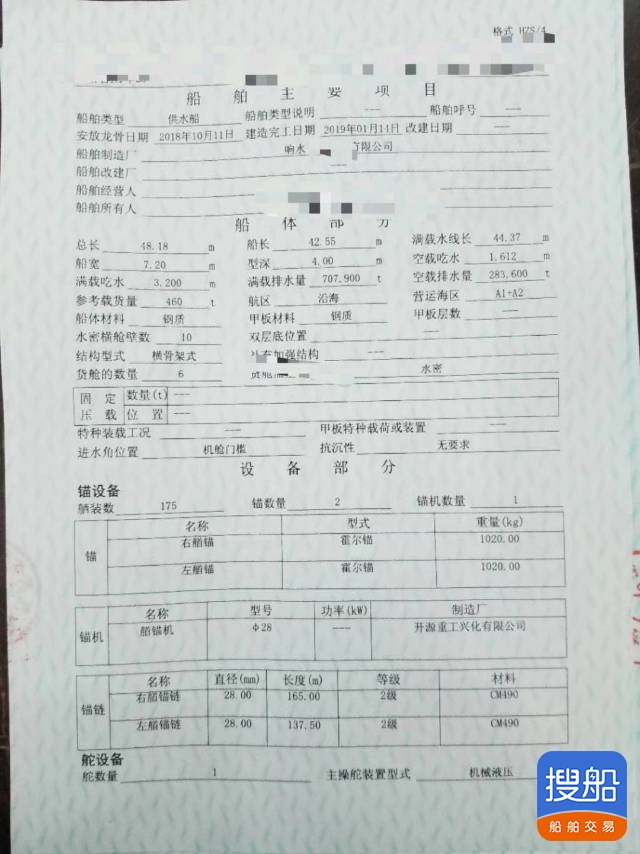 格式 HZS/4
船舶主要项目
船舶类型 供水船 船舶类型说明 --- 船舶呼号 ---
安放龙骨日期 2018年10月11日 建造完工日期 2019年01月14日 改建日期 ---
船舶制造厂 响水 有限公司
船舶改建厂 ---
船舶经营人
船舶所有人
船体部分
总长 48.18 m 船长 42.55 m 满载水线长 44.37 m
船宽 7.20 m 型深 4.00 m 空载吃水 1.612 m
满载吃水 3.200 m 满载排水量 707.900 t 空载排水量 283.600 t
参考载货量 460 t 航区 沿海 营运海区 A1+A2
船体材料 钢质 甲板材料 钢质 甲板层数 ---
水密横舱壁数 10 双层底位置 ---
结构型式 横骨架式 加强结构 ---
货舱的数量 6 水密
固定 数量(t) ---
压载 位置 ---
特种装载工况 --- 甲板特种载荷或装置 ---
进水角位置 机舱门槛 抗沉性 无要求
设备部分
锚设备
舾装数 175 锚数量 2 锚机数量 1
锚 名称 型式 重量(kg)
右艏锚 霍尔锚 1020.00
左艏锚 霍尔锚 1020.00
锚机 名称 型号 功率(kW) 制造厂
艏锚机 Φ28 --- 开源重工兴化有限公司
锚链 名称 直径(mm) 长度(m) 等级 材料
右艏锚链 28.00 165.00 2级 CM490
左艏锚链 28.00 137.50 2级 CM490
舵设备
舵数量 1 主操舵装置型式 机械液压
搜船
船舶交易